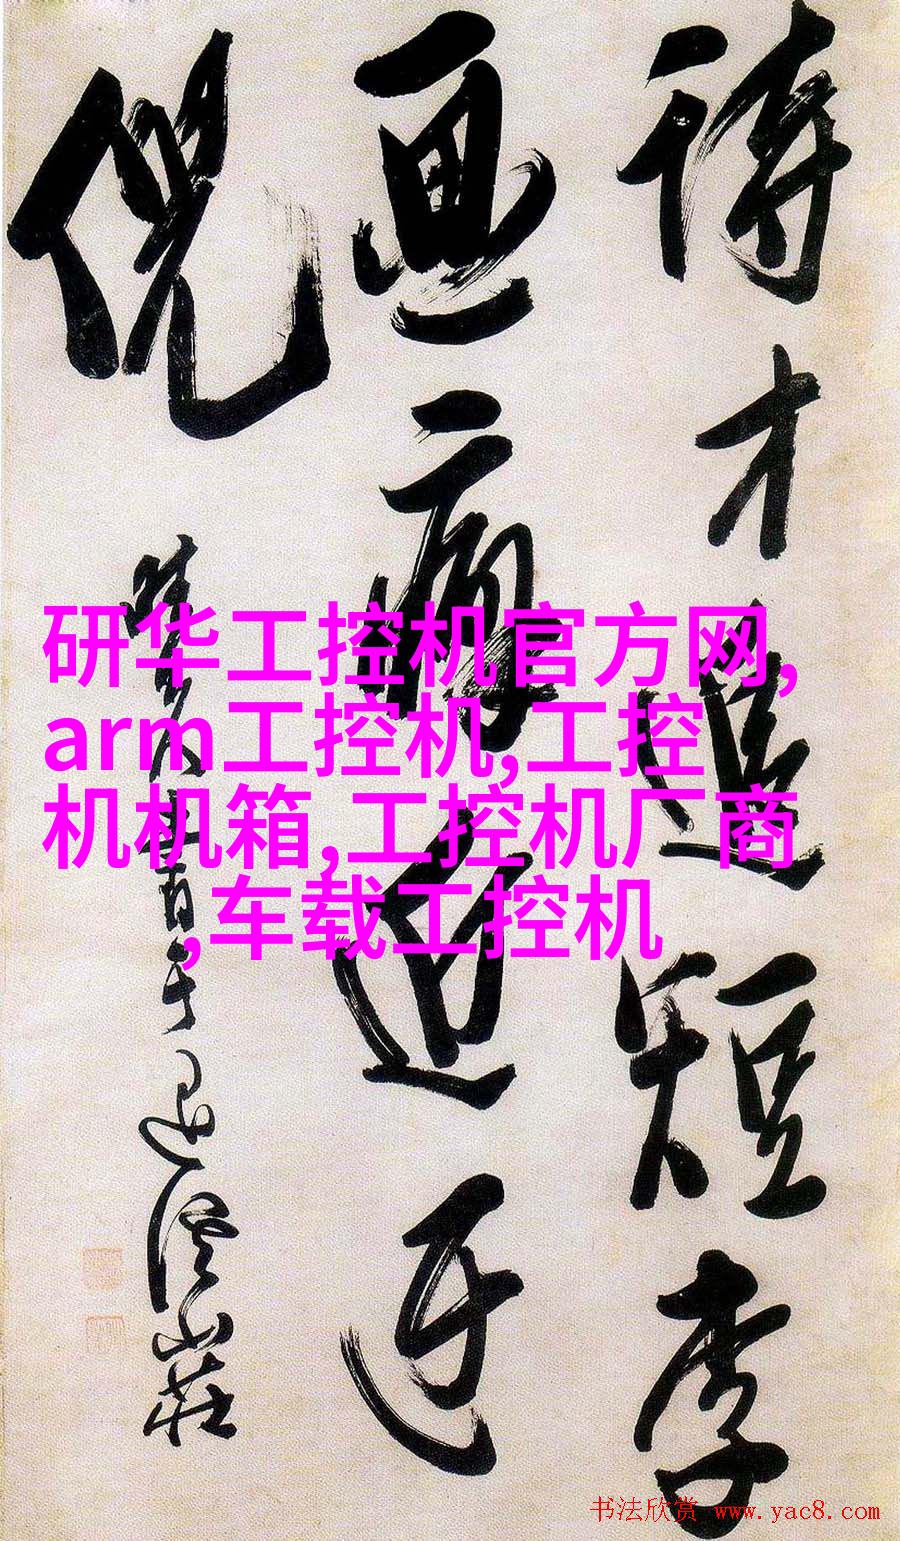 詩才追短李
画迂
倪
研华工控机官方网,
arm工控机,工控
机机箱,工控机厂商
,车载工控机
书法欣赏 www.yac8.com